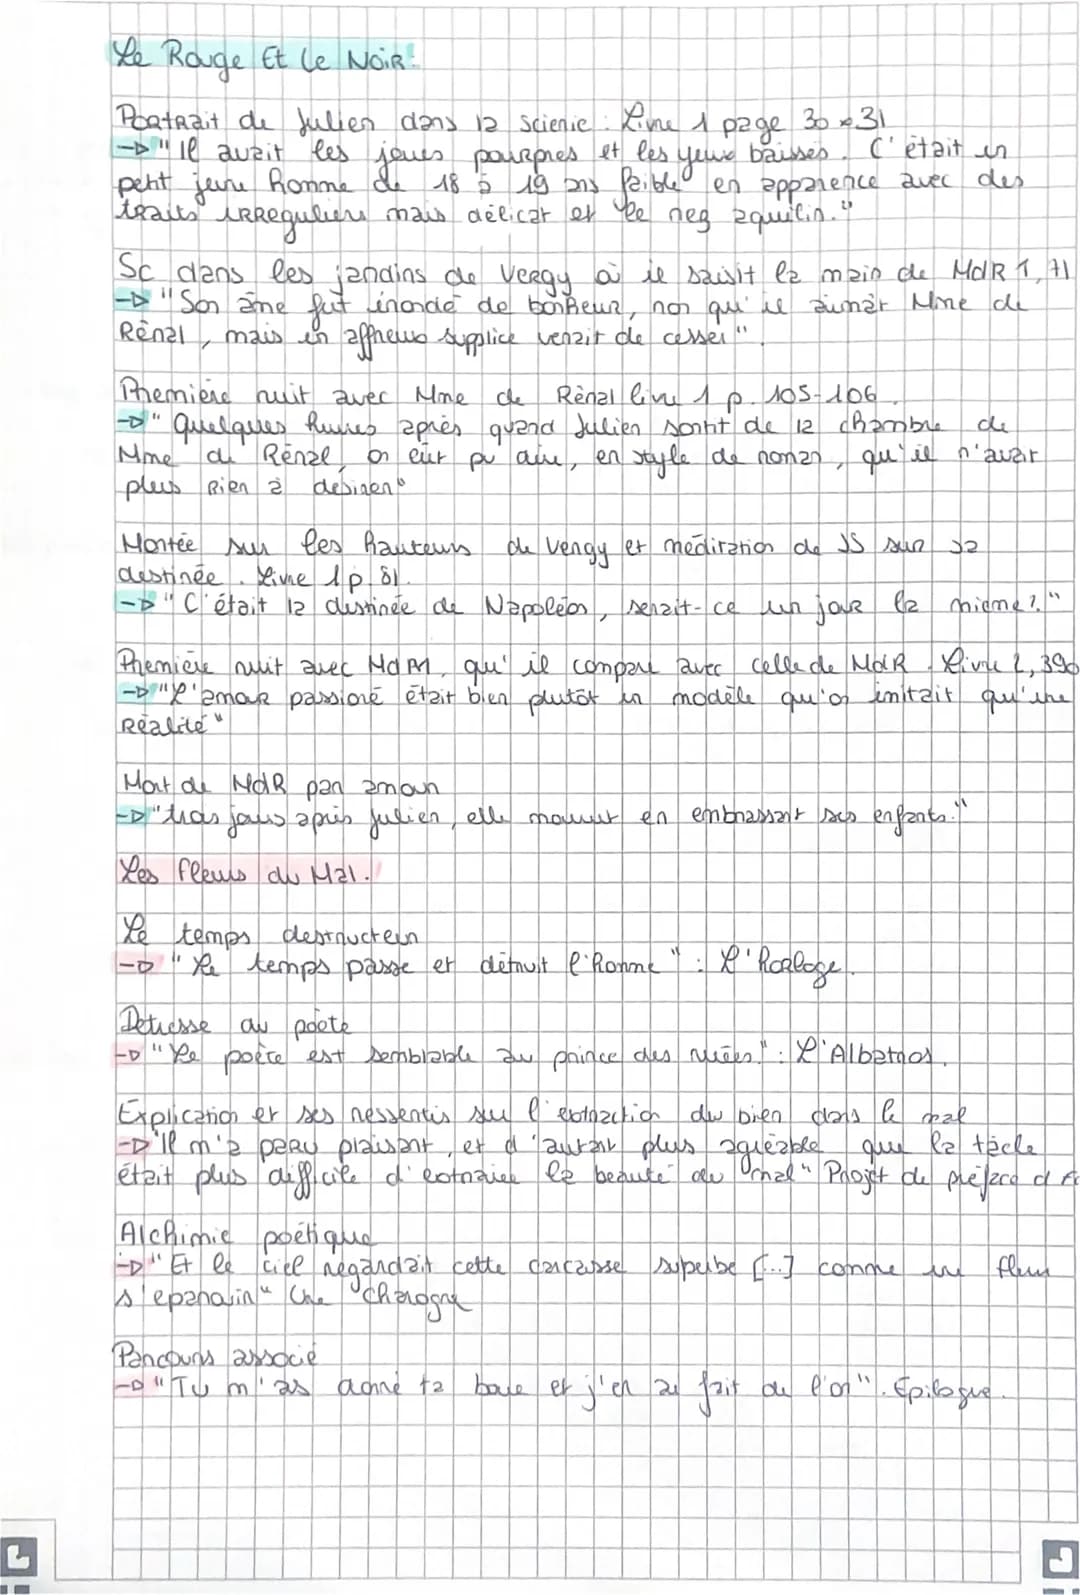 Le Rouge Et Le Noir:
Portrait de Julien dans la scierie : Livre 1 page 30 à 31
→ "Il avait les joues pourpres et les yeux baissés. C'était un
petit jeune homme de 18 à 19 ans faible en apparence avec des
traits irréguliers mais délicat et le nez aquilin."
Sc dans les jardins de Vergy où il saisit la main de MdR 1, 71
→ "Son âme fut inondé de bonheur, non qu'il aimât Mme de
Rênal, mais un affreux supplice venait de cesser".
Première nuit avec Mme de Rênal livre 1 p. 105-106.
→ "Quelques heures après quand Julien sortit de la chambre de
Mme de Rênal, on eût pu dire, en style de roman, qu'il n'avait
plus rien à désirer"
Montée sur les hauteurs de Vergy et méditation de JS sur sa
destinée. Livre 1 p. 81.
→ "C'était la destinée de Napoléon, serait-ce un jour la mienne?."
Première nuit avec MdM, qu'il compare avec celle de MdR. Livre 2, 390
→ "L'amour passioné était bien plutôt un modèle qu'on imitait qu'une
Réalité"
Mort de MdR par amour
→ "trois jours après Julien, elle mourut en embrassant ses enfants."
Les fleurs du Mal.
Le temps destructeur
→ "Le temps passe et détruit l'homme" : L'Horloge.
Detresse du poète
→ "Le poète est semblable au prince des nuées" : L'Albatros.
Explication et ses ressentis sur l'extraction du bien dans le mal
→ "Il m'a paru plaisant, et d'autant plus agréable que la tâche
était plus difficile d'extraire la beauté du mal" Projet de préface d
Alchimie poétique
→ "Et le ciel regardait cette carcasse superbe [...] comme une fleur
s'epanouir" Une charogne
Parcours associé
→ "Tu m'as donné ta boue et j'en ai fait de l'or". Épilogue.